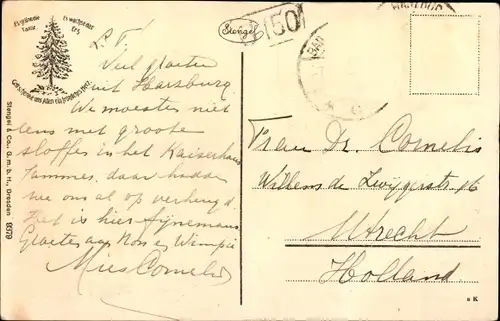 Es grüne die
Tanne,
Es wachse das
Erz,
Gott schenke uns Allen ein fröhliches Herz.
Stengel
50
L.T.
Veel groeten
uit Harzburg.
We moesten niet
eens met groote
stoffes in het Kaiserhaus
, daar hadden
we ons al op verheugd.
Het is hier fijn
Groetes aan Non en Wimpie
Mies Cornelis
Frau Dr. Cornelis
Willem de Zwijgerstr. 16
Utrecht
Holland.
Stengel & Co., G. m. b. H., Dresden 9379
a K